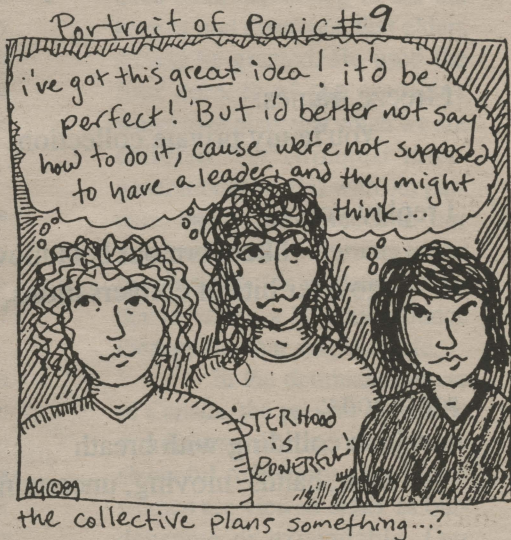 Portrait of Panic #9
i've got this great idea! it'd be
perfect! But i'd better not say
how to do it, cause we're not supposed
to have a leader, and they might
think...
iSTERHood
is
POWERFUL!
AG©89
the collective plans something...?